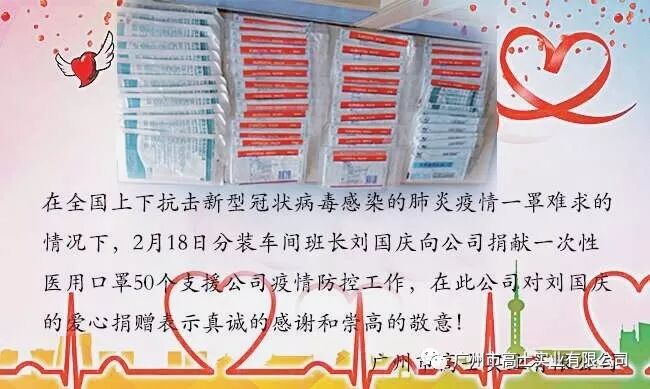 在全国上下抗击新型冠状病毒感染的肺炎疫情一罩难求的
情况下，2月18日分装车间班长刘国庆向公司捐献一次性
医用口罩50个支援公司疫情防控工作，在此公司对刘国庆
的爱心捐赠表示真诚的感谢和崇高的敬意！
广州市高士实业有限公司